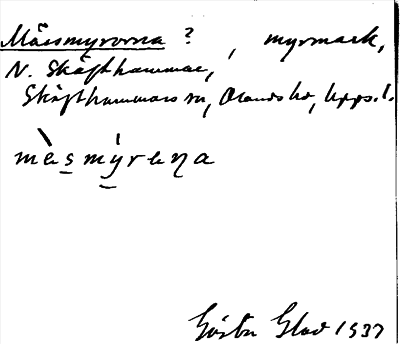 Mässmyrorna ? , myrmark,
N. Skäfthammar,
Skäfthammars sn, Olands hd, Upps. l.
mὲsmýrεɳa
Gösta Glad 1937